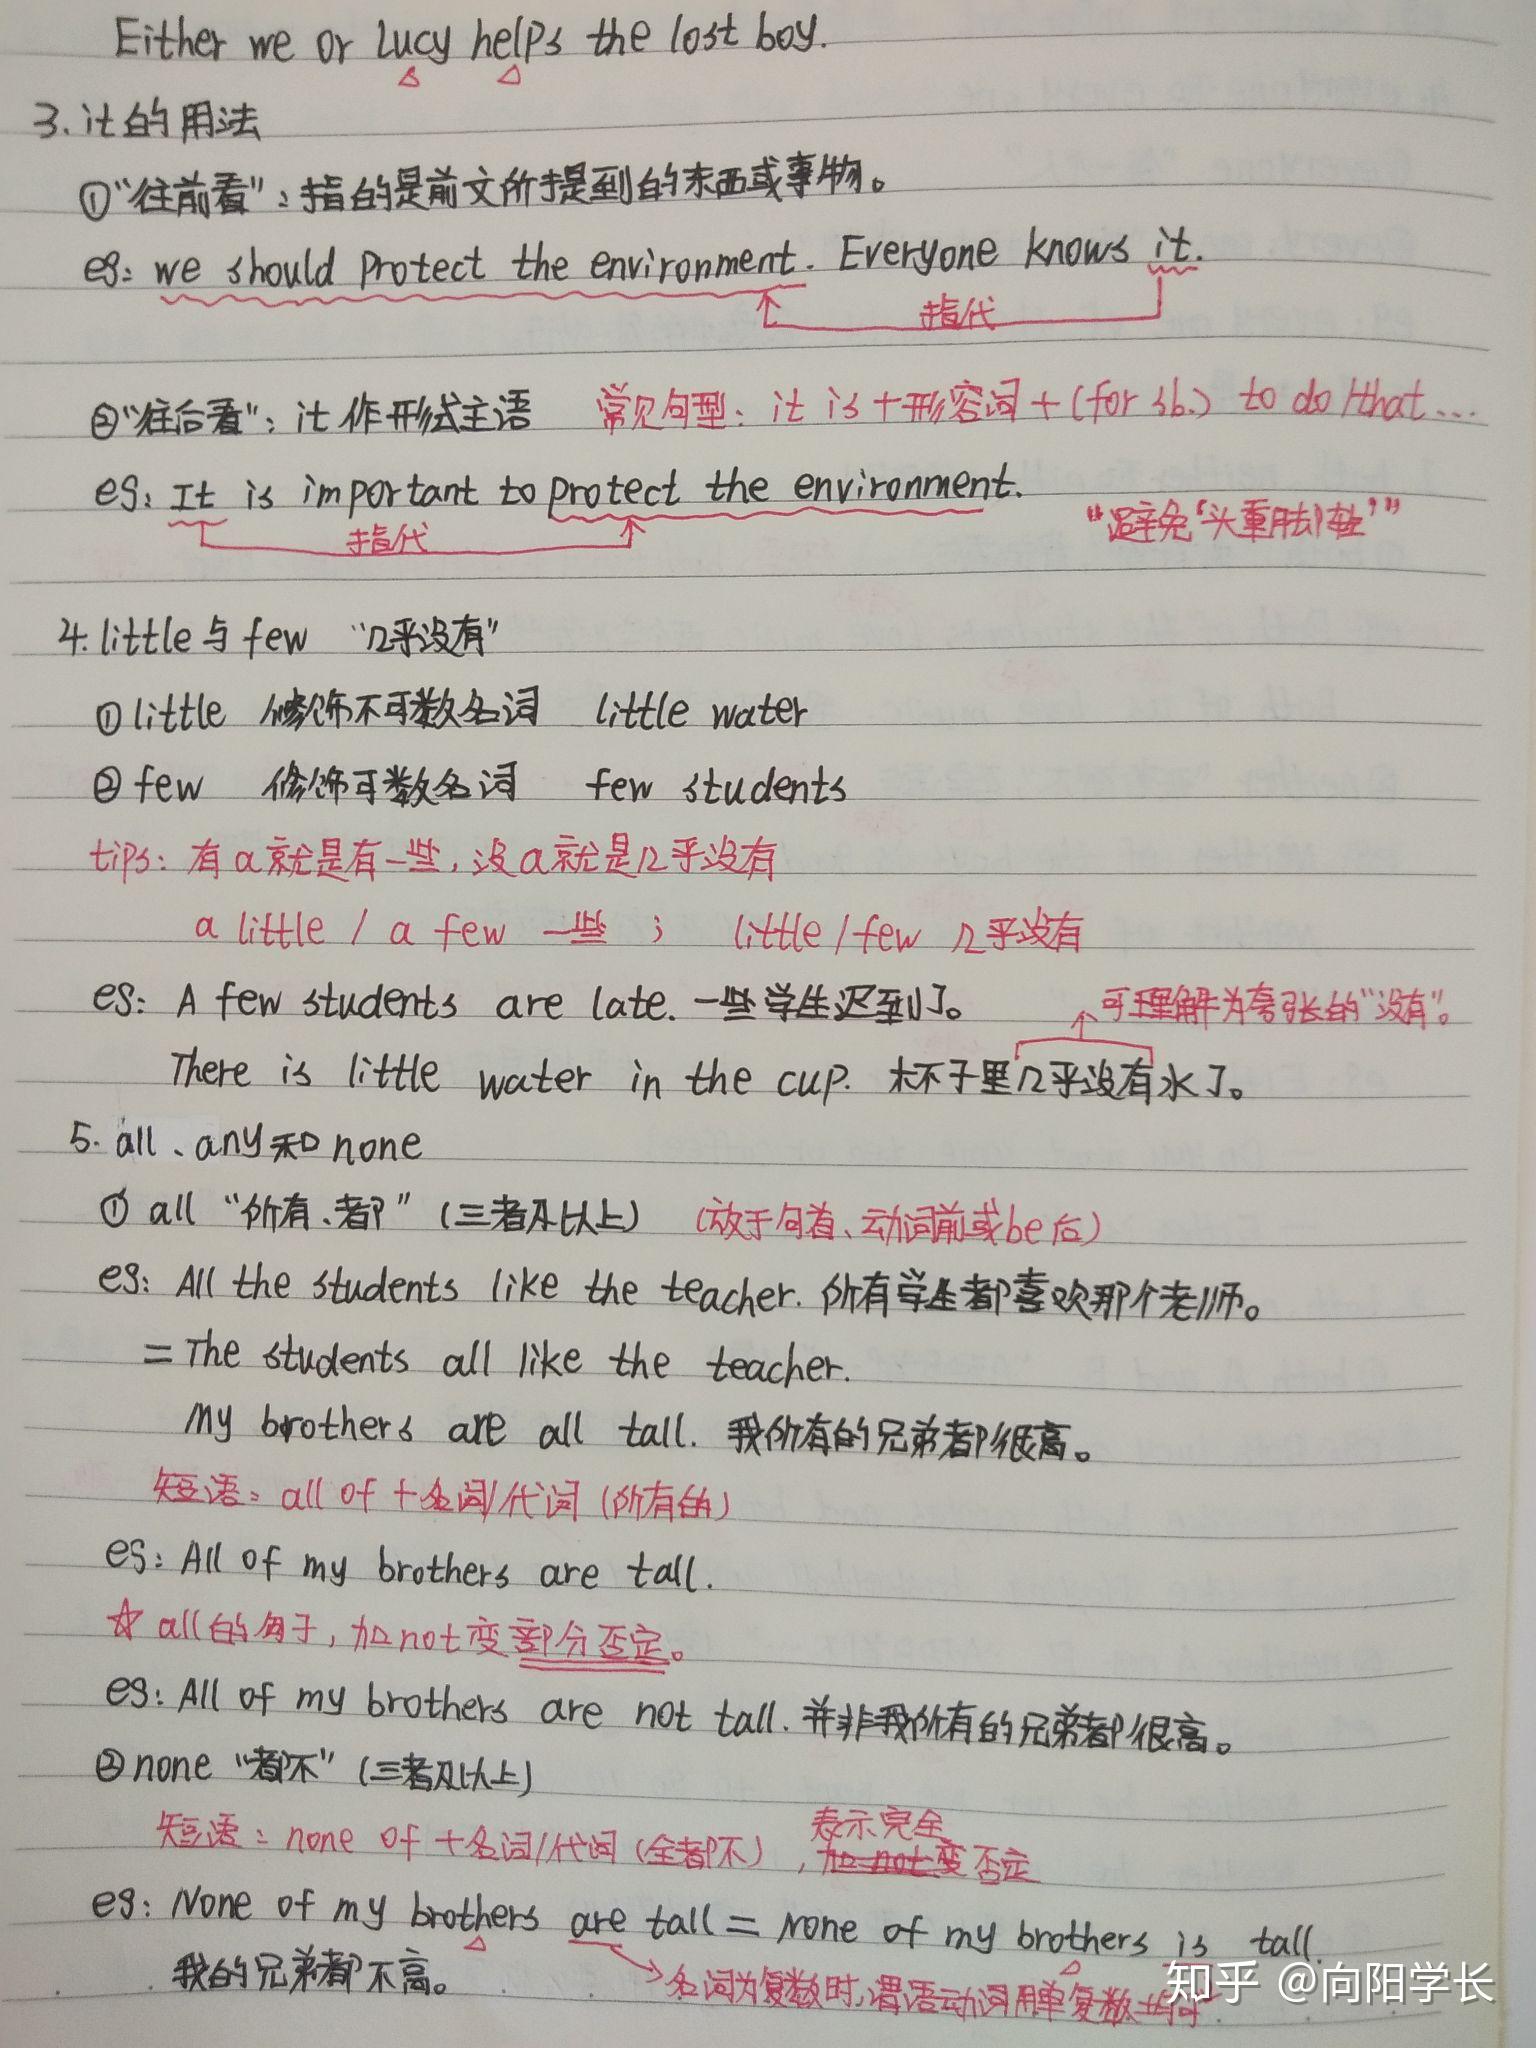 Either we or Lucy helps the lost boy.
3. it的用法
①“往前看”:指的是前文所提到的东西或事物。
eg: we should protect the environment. Everyone knows it.
指代
②“往后看”: it 作形式主语 常见句型: it is + 形容词 + (for sb.) to do / that ...
eg: It is important to protect the environment.
指代 “避免‘头重脚轻’”
4. little与few “几乎没有”
① little 修饰不可数名词 little water
② few 修饰可数名词 few students
tips: 有a就是有一些, 没a就是几乎没有
a little / a few 一些 ; little / few 几乎没有
eg: A few students are late. 一些学生迟到了。 可理解为夸张的“没有”。
There is little water in the cup. 杯子里几乎没有水了。
5. all、any和none
① all “所有、都” (三者及以上) (放于句首、动词前或be后)
eg: All the students like the teacher. 所有学生都喜欢那个老师。
= The students all like the teacher.
My brothers are all tall. 我所有的兄弟都很高。
短语: all of + 名词/代词 (所有的)
eg: All of my brothers are tall.
☆ all的句子, 加not变部分否定。
eg: All of my brothers are not tall. 并非我所有的兄弟都很高。
② none “都不” (三者及以上)
表示完全
短语: none of + 名词/代词 (全都不), 加not变否定
eg: None of my brothers are tall = None of my brothers is tall.
我的兄弟都不高。 名词为复数时, 谓语动词用单复数均可
知乎 @向阳学长